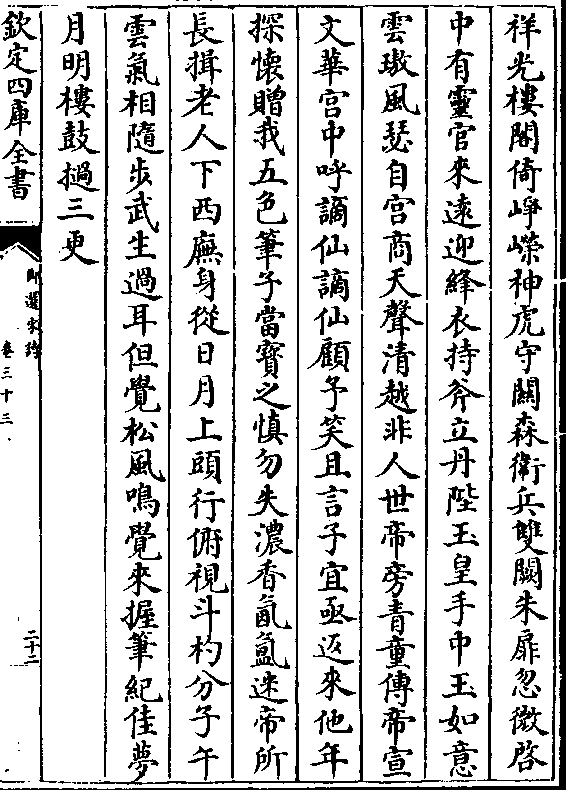 祥光樓閣倚崢嶸神虎守關森衛兵雙闕朱扉忽微啓
中有靈官來遠迎絳衣持斧立丹陛玉皇手中玉如意
雲璈風瑟自宫商天聲清越非人世帝旁青童傳帝宣
文華宫中呼謫仙謫仙顧予笑且言子宜亟返來他年
探懷贈我五色筆子當寳之慎勿失濃香氤氲迷帝所
長揖老人下西廡身從日月上頭行俯視斗杓分子午
雲氣相隨步武生過耳但覺松風鳴覺來握筆紀佳夢
月明樓鼓撾三更
欽定四庫全書
御選宋詩
卷三十三
二十二